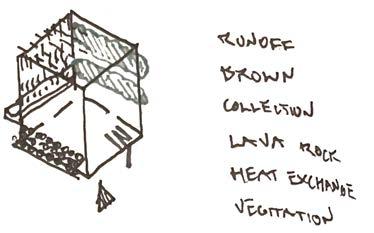 RUNOFF
BROWN
COLLECTION
LAVA ROCK
HEAT EXCHANGE
VEGITATION